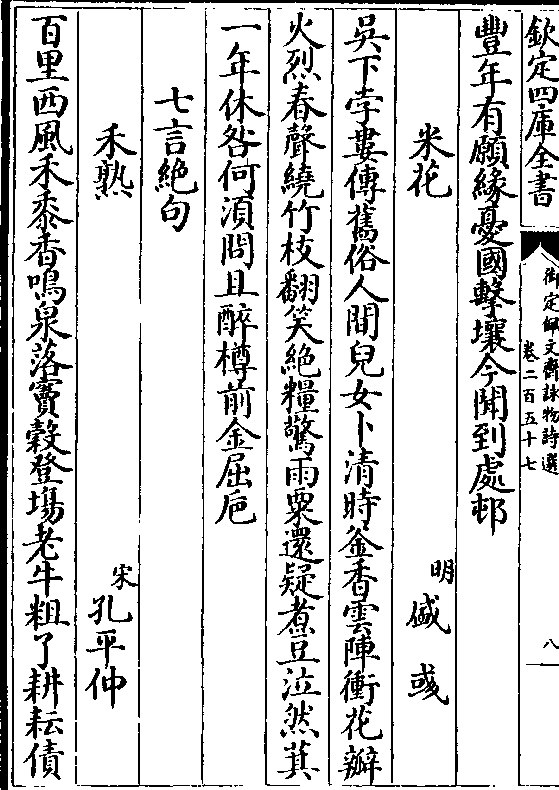 欽定四庫全書
御定佩文齋詠物詩選
卷二百五十七
八
豐年有願緣憂國擊壤今聞到處邨
米花
明 盛彧
吳下孛婁傳舊俗人間兒女卜清時釡香雲陣衝花瓣
火烈春聲繞竹枝翻笑絕糧驚雨粟還疑煮豆泣然萁
一年休咎何湏問且醉樽前金屈卮
七言絕句
禾熟
宋 孔平仲
百里西風禾黍香鳴泉落竇榖登場老牛粗了耕耘債